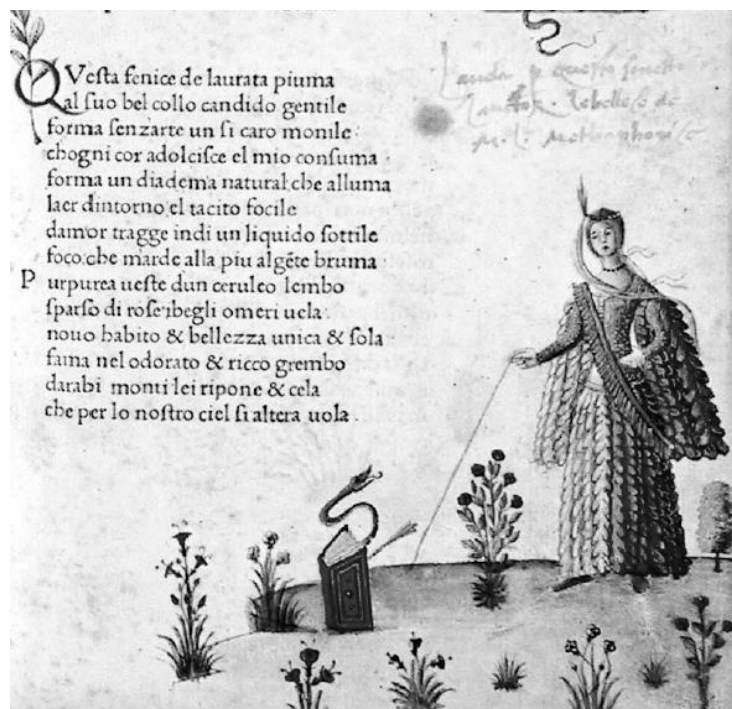 QVeſta fenice de laurata piuma
al ſuo bel collo candido gentile
forma ſenzarte un ſi caro monile:
chogni cor adolciſce el mio conſuma.
forma un diadema natural che alluma
laer dintorno: el tacito focile
damor tragge indi un liquido ſottile
foco: che marde alla piu algẽte bruma
Purpurea ueſte dun ceruleo lembo
ſparſo di roſe ibegli omeri uela:
nouo habito & bellezza unica & ſola
fama nel odorato & ricco grembo
darabi monti lei ripone & cela
che per lo noſtro ciel ſi altera uola.
queſto